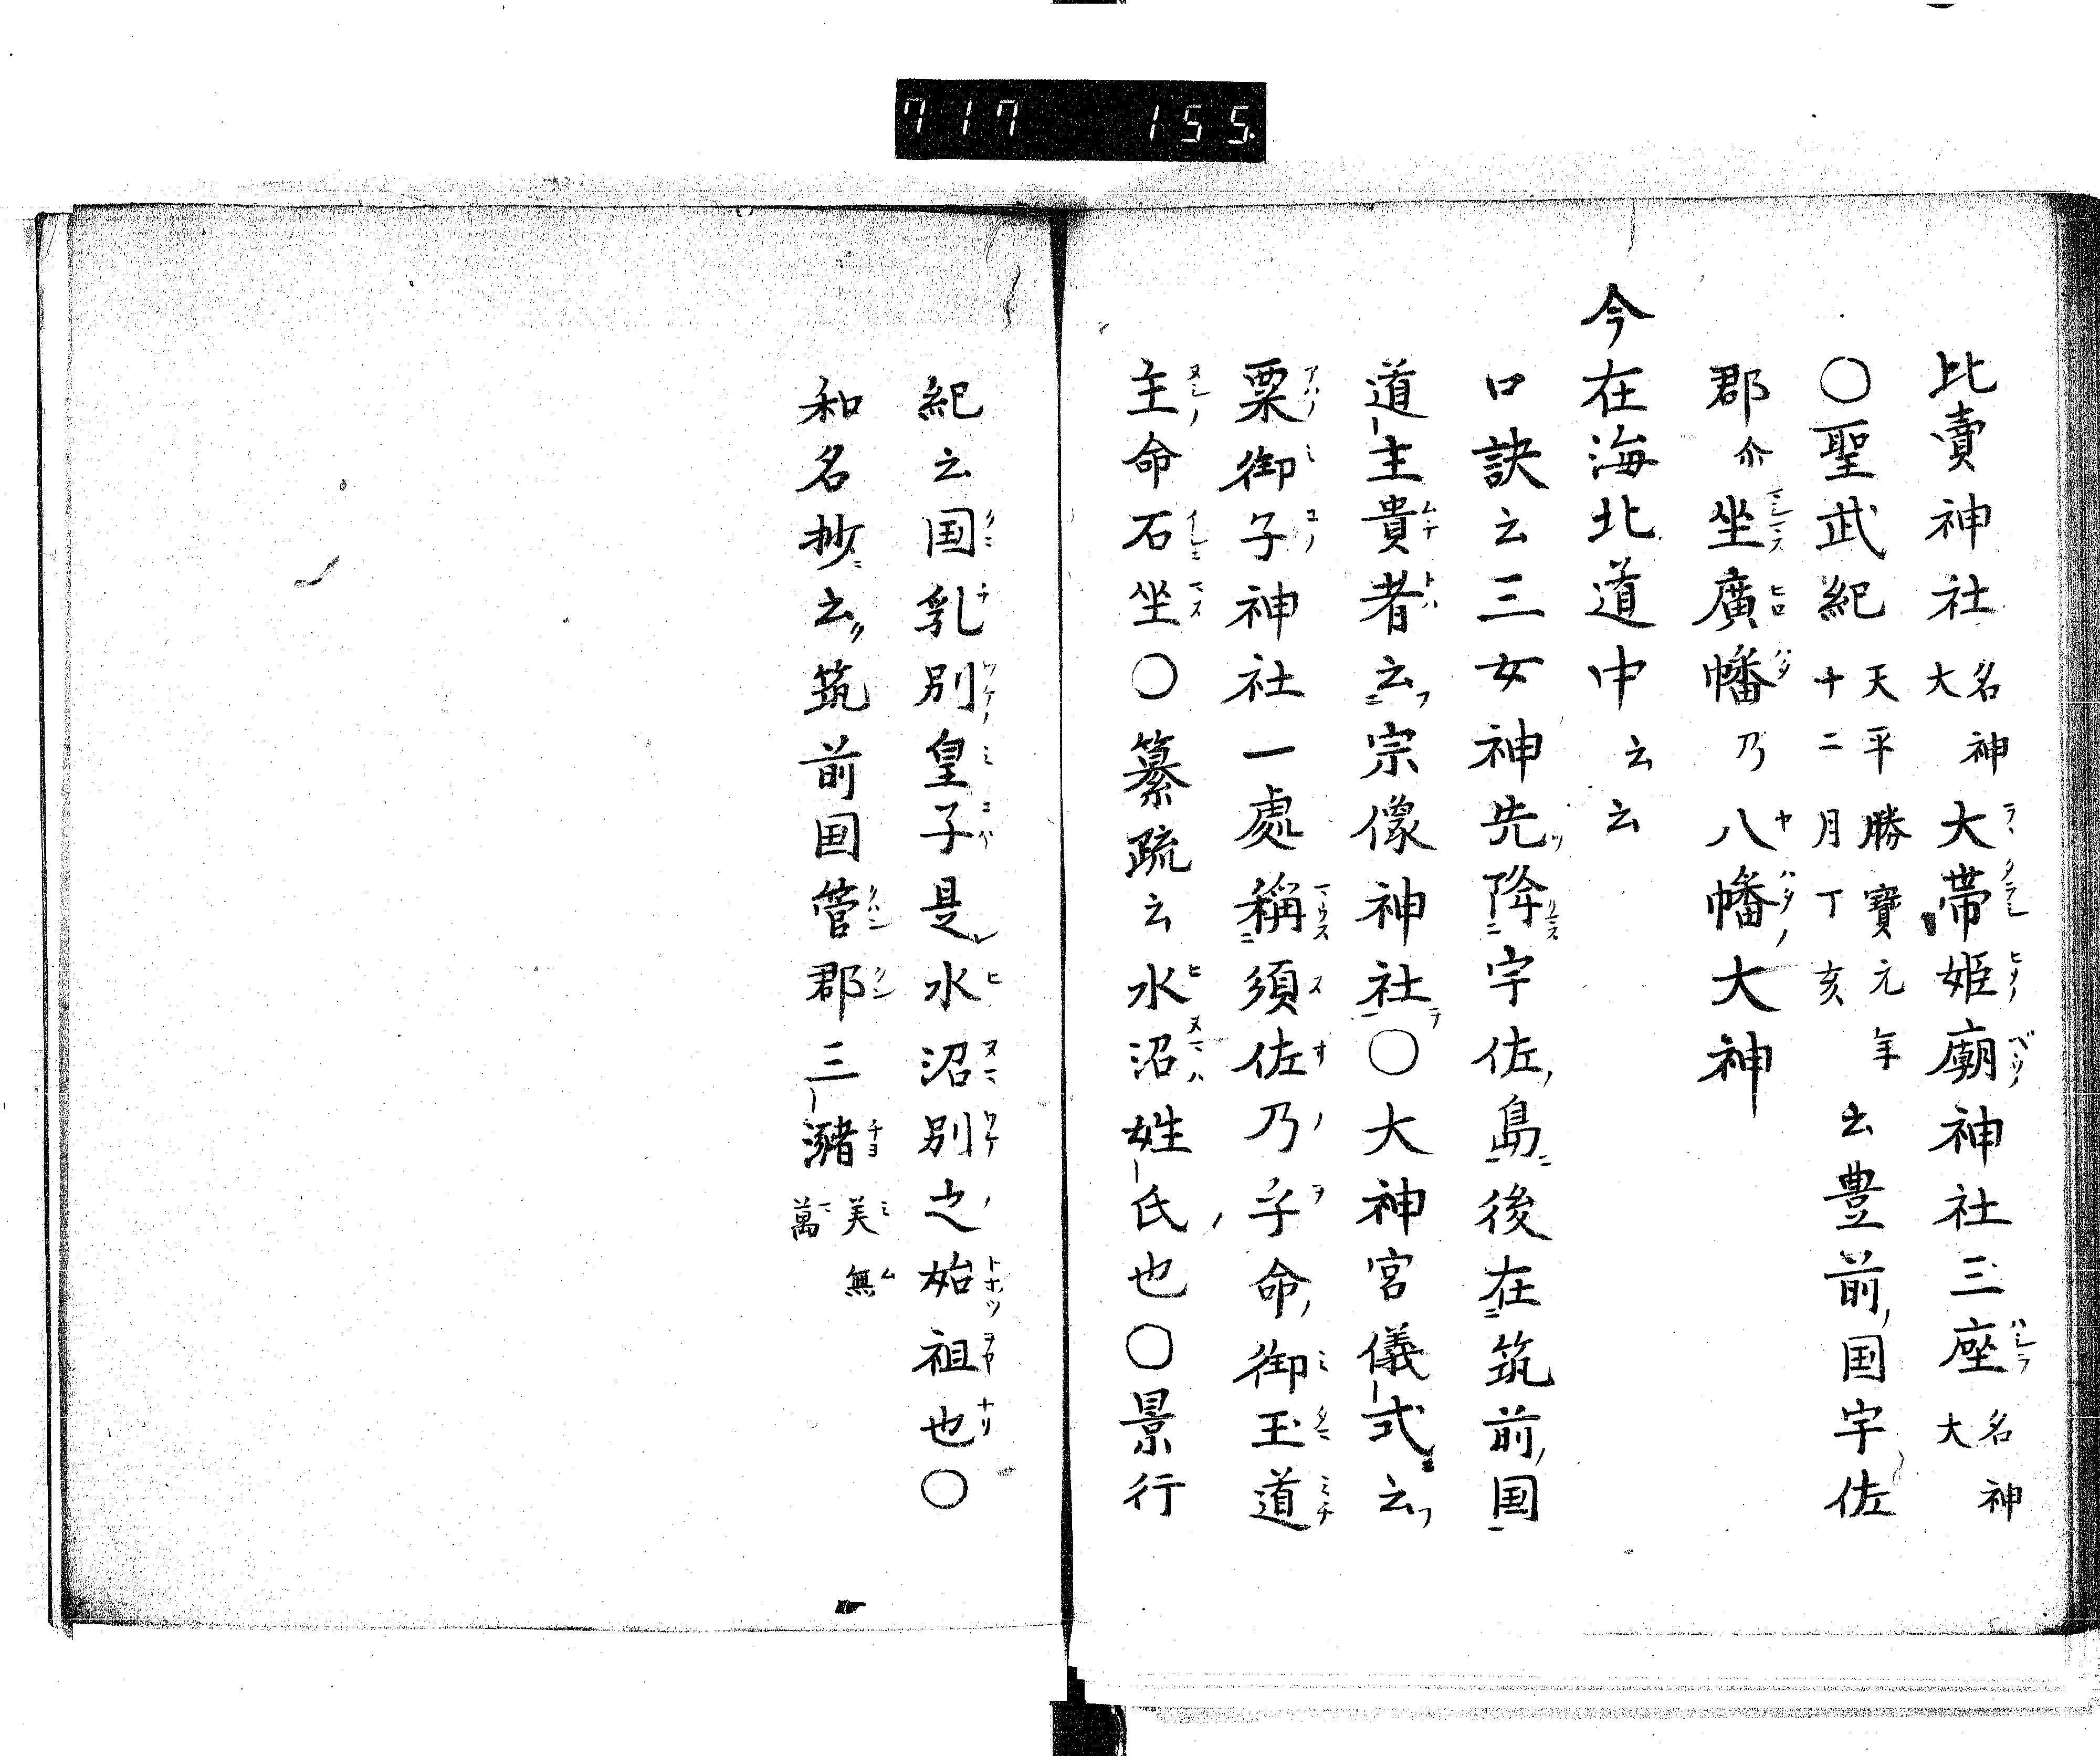 717 155
比賣神社名神大大帯姫廟神社三座名神大
○聖武紀天平勝寶元年十二月丁亥云豊前国宇佐
郡尓坐廣幡乃八幡大神
今在海北道中云云
口訣云三女神先降宇佐島後在筑前国
道主貴者云宗像神社○大神宮儀式云
粟御子神社一處稱須佐乃乎命御玉道
主命石坐○纂疏云水沼姓氏也○景行
紀云国乳別皇子是水沼別之始祖也○
和名抄云筑前国管郡三瀦美無萬